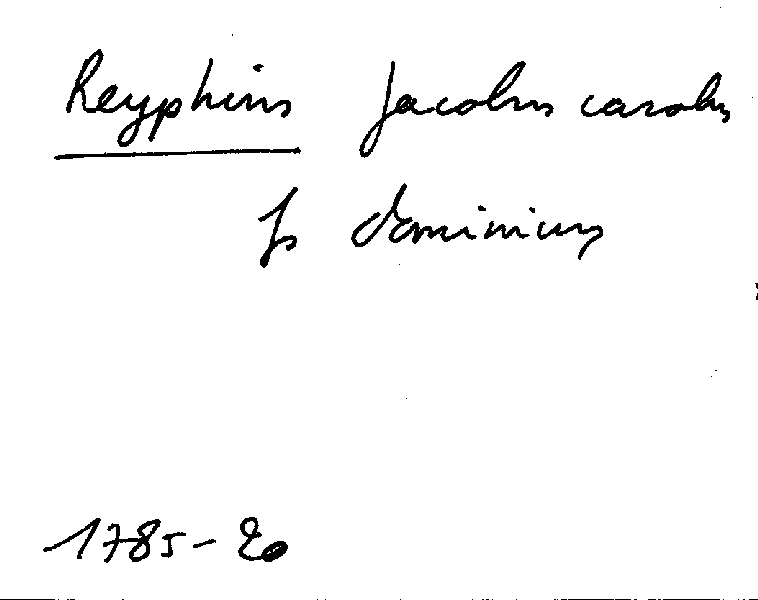 Reyphins Jacobus carolus
fs dominicus
1785-20